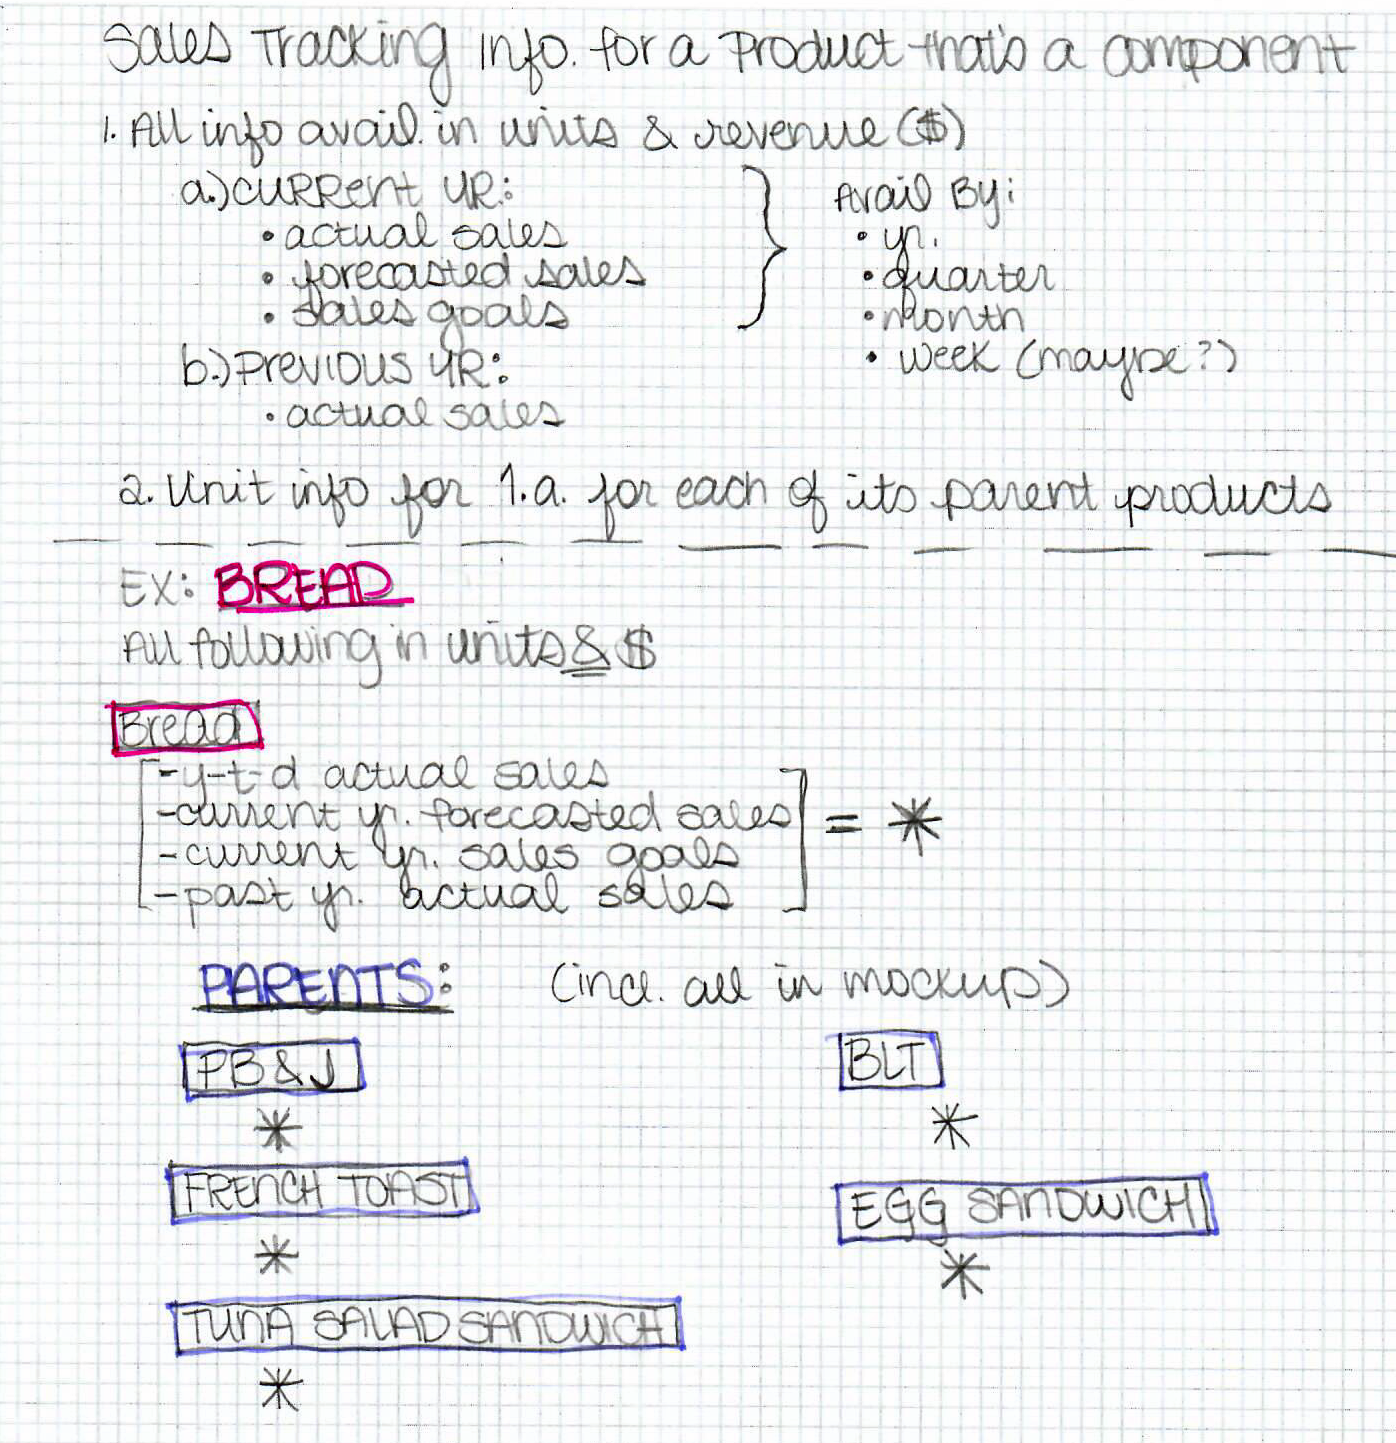 Sales Tracking Info. for a Product that's a component
1. All info avail. in units & revenue ($)
a.) current yr:
• actual sales
• forecasted sales
• sales goals
Avail By:
• yr.
• quarter
• month
• week (maybe?)
b.) Previous YR:
• actual sales
2. Unit info for 1.a. for each of its parent products
EX: BREAD
All following in units & $
Bread
-y-t-d actual sales
-current yr. forecasted sales
-current yr. sales goals
-past yr. actual sales
= *
PARENTS: (incl. all in mockup)
PB & J
*
FRENCH TOAST
*
TUNA SALAD SANDWICH
*
BLT
*
EGG SANDWICH
*